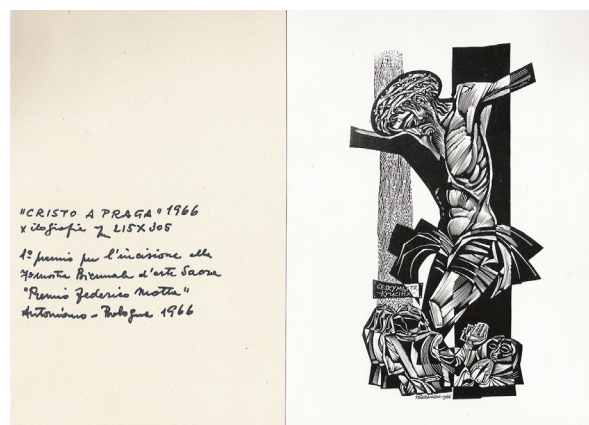 "CRISTO A PRAGA" 1966
xilografia 215 X 305
1º premio per l'incisione alla
7ª mostra Biennale d'arte Sacra
"Premio Federico Motta"
Antoniano - Bologna 1966